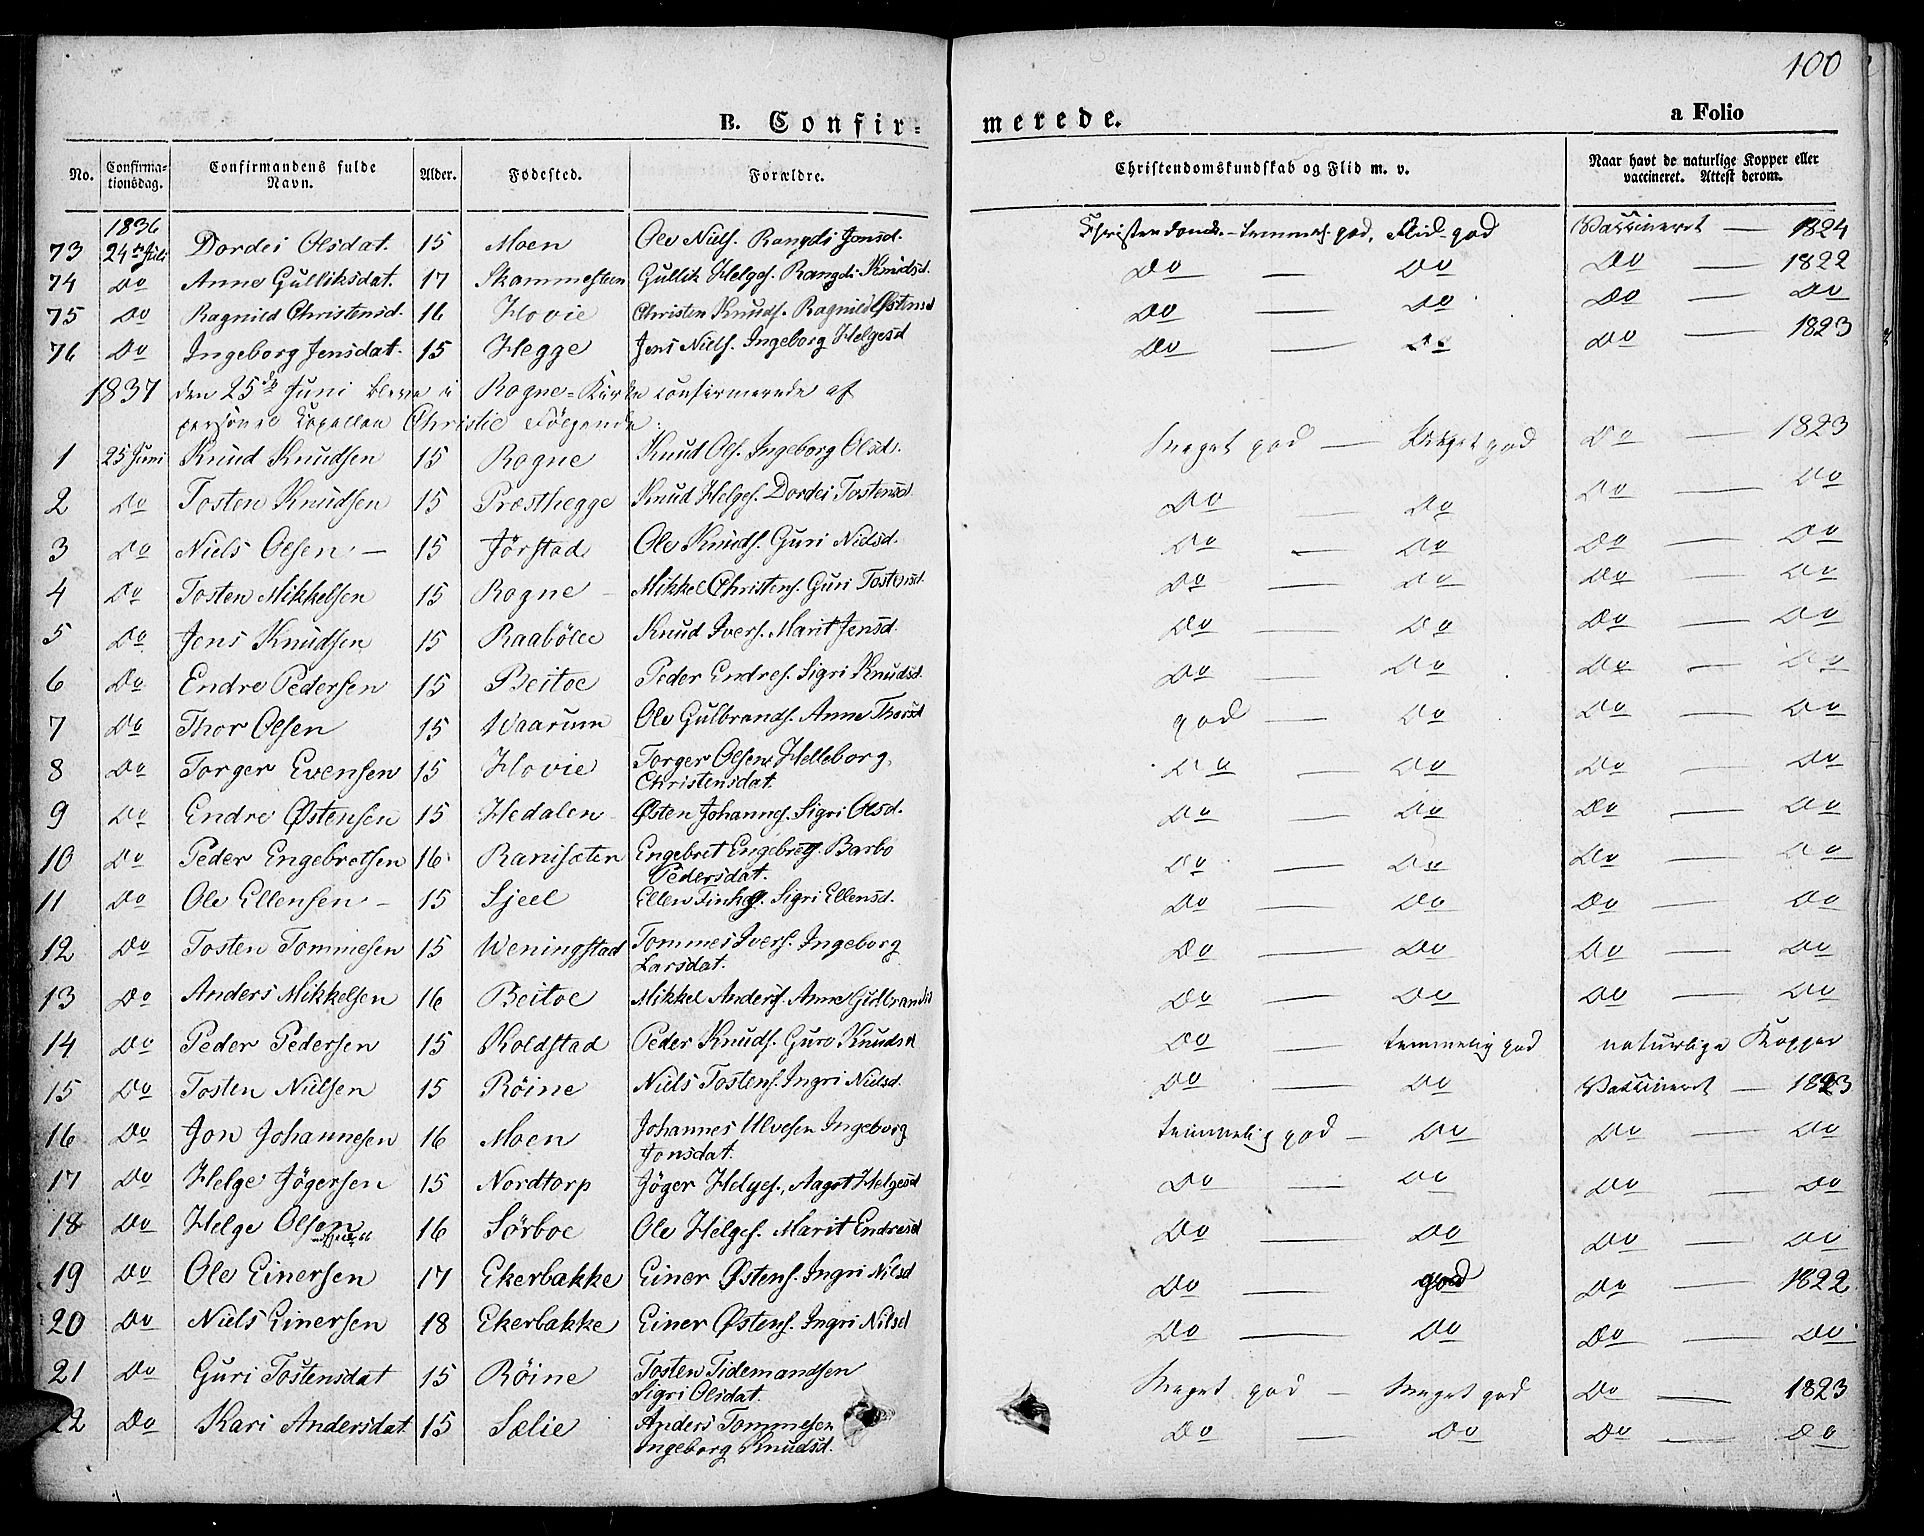 100
B. Confir- merede. a Folio
No. Confirma-tionsdag. Confirmandens fulde Navn. Alder. Fødested. Forældre. Christendomskundskab og Flid m. v. Naar havt de naturlige Kopper eller vaccineret. Attest derom.
1836
73 24de Juli Dordei Olsdat. 15 Moen Ole Niels. Rangdi Jonsd. Christendomsk. temmel. god, Flid god Vaccineret — 1824
74 Do Anne Gulliksdat. 17 Skammesteen Gullik Helges. Rangdi Knudsd. Do — Do Do — 1822
75 Do Ragnild Christensd. 16 Hovie Christen Knuds. Ragnild Østensd Do — Do Do — Do
76 Do Ingeborg Jensdat. 15 Hegge Jens Niels. Ingeborg Helgesd Do — Do Do — 1823
1837 den 25de Juni bleve i Rogne-Kirke confirmerede af
personel Capellan Christie Følgende:
1 25 Juni Knud Knudsen 15 Rogne Knud Ols. Ingeborg Olsd. Meget god — Meget god Do — 1823
2 Do Tosten Knudsen 15 Præsthegge Knud Helges. Dordei Tostensd. Do — Do Do — Do
3 Do Niels Olsen — 15 Jørstad Ole Knuds. Guri Nielsd. Do — Do Do — Do
4 Do Tosten Mikkelsen 15 Rogne Mikkel Christens. Guri Tostensd. Do — Do Do — Do
5 Do Jens Knudsen 15 Raabøle Knud Ivers. Marit Jensd. Do — Do Do — Do
6 Do Endre Pedersen 15 Beitoe Peder Endres. Sigri Knudsd. Do — Do Do — Do
7 Do Thor Olsen 15 Waarum Ole Gulbrands. Anne Thorsd god — Do Do — Do
8 Do Torger Evensen 15 Hovie Torger Olsen Helleborg
Christensdat. Do — Do Do — Do
9 Do Endre Østensen 15 Hedalen Østen Johannes. Sigri Olsd. Do — Do Do — Do
10 Do Peder Engebretsen 16 Ranisæten Engebret Engebrets. Barbo
Pedersdat. Do — Do Do — Do
11 Do Ole Ellensen — 15 Sjeel Ellen Sigri Ellensd. Do — Do Do — Do
12 Do Tosten Tommesen 15 Weningstad Tommes Ivers. Ingeborg
Larsdat. Do — Do Do — Do
13 Do Anders Mikkelsen 16 Beitoe Mikkel Anders. Anne Gulbrandsd Do — Do Do — Do
14 Do Peder Pedersen 15 Koldstad Peder Knuds. Guro Knudsd Do — temmelig god naturlige Kopper
15 Do Tosten Nielsen 15 Røine Niels Tostens. Ingri Nielsd. Do — Do Vaccineret — 1823
16 Do Jon Johannesen 16 Moen Johannes Ulvesen Ingeborg
Jonsdat. temmelig god — Do Do — Do
17 Do Helge Jøgersen 15 Nordtorp Jøger Helges. Aagot Helgesd Do — Do Do — Do
18 Do Helge Olsen 16 Sørboe Ole Helges. Marit Endresd Do — Do Do — Do
19 Do Ole Einersen 17 Ekerbakke Einer Østens. Ingri Nilsd Do — god Do — 1822
20 Do Niels Einersen 18 Ekerbakke Einer Østens. Ingri Nilsd Do — Do Do — Do
21 Do Guri Tostensdat 15 Røine Tosten Tidemandsen
Sigri Olsdat. Meget god — Meget god Do — 1823
22 Do Kari Andersdat. 15 Sælie Anders Tommesen
Ingeborg Knudsd. Do — Do Do — Do